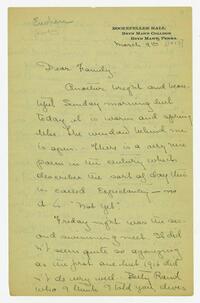 ROCKEFELLER HALL,
BRYN MAWR COLLEGE
BRYN MAWR, PENNA.
March 9th
Dear Family,
Another bright and beau-
tiful Sunday morning but
today it is warm and spring
like. The window behind me
is open. There is a very nice
poem in the Century which
describes the sort of day this
is called Expectancy — no
it is "Not yet".
Friday night was the se-
cond swimming meet. It did
n't seem quite so agonizing
as the first one but 1916 did
n't do very well. Betty Rand
who I think I told you dives